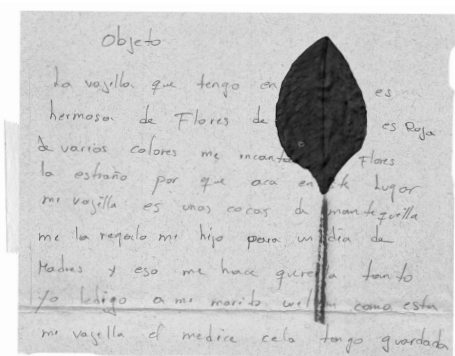 Objeto
La vajilla que tengo en es
hermosa de Flores de es Roja
de varios colores me encanta Flores
la estraño por que aca en lugar
mi vajilla es unas cocas de mantequilla
me la regalo mi hijo para un dia de
Madres y eso me hace tanto
yo ledigo a mi marito como esta
mi vajilla el medice cela tengo guardada